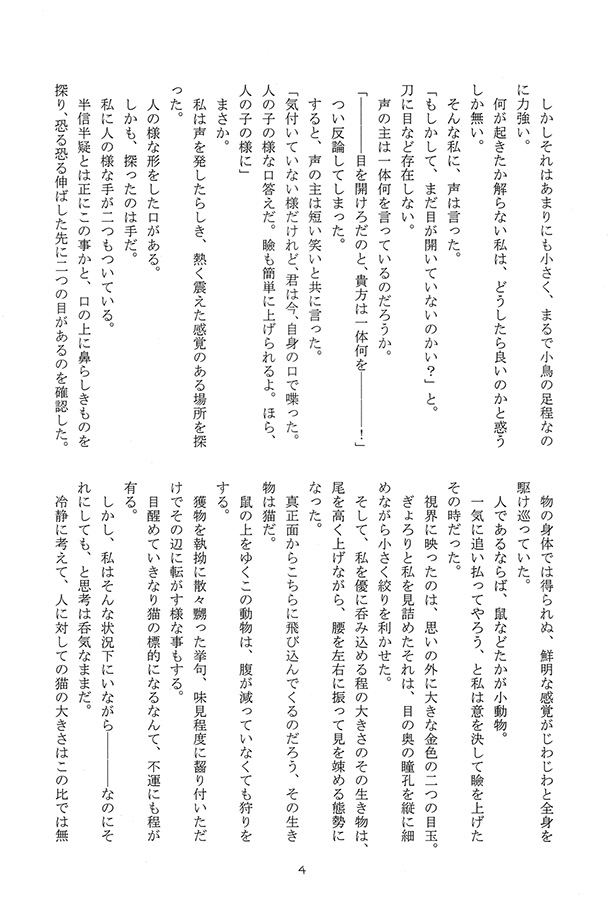 しかしそれはあまりにも小さく、まるで小鳥の足程なの
に力強い。
何が起きたか解らない私は、どうしたら良いのかと惑う
しか無い。
そんな私に、声は言った。
「もしかして、まだ目が開いていないのかい？」と。
刀に目など存在しない。
声の主は一体何を言っているのだろうか。
「―――目を開けろだのと、貴方は一体何を―――！」
つい反論してしまった。
すると、声の主は短い笑いと共に言った。
「気付いていない様だけれど、君は今、自身の口で喋った。
人の子の様な口答えだ。瞼も簡単に上げられるよ。ほら、
人の子の様に」
まさか。
私は声を発したらしき、熱く震えた感覚のある場所を探
った。
人の様な形をした口がある。
しかも、探ったのは手だ。
私に人の様な手が二つもついている。
半信半疑とは正にこの事かと、口の上に鼻らしきものを
探り、恐る恐る伸ばした先に二つの目があるのを確認した。
物の身体では得られぬ、鮮明な感覚がじわじわと全身を
駆け巡っていた。
人であるならば、鼠などたかが小動物。
一気に追い払ってやろう、と私は意を決して瞼を上げた
その時だった。
視界に映ったのは、思いの外に大きな金色の二つの目玉。
ぎょろりと私を見詰めたそれは、目の奥の瞳孔を縦に細
めながら小さく絞りを利かせた。
そして、私を優に呑み込める程の大きさのその生き物は、
尾を高く上げながら、腰を左右に振って見を竦める態勢に
なった。
真正面からこちらに飛び込んでくるのだろう、その生き
物は猫だ。
鼠の上をゆくこの動物は、腹が減っていなくても狩りを
する。
獲物を執拗に散々嬲った挙句、味見程度に齧り付いただ
けでその辺に転がす様な事もする。
目醒めていきなり猫の標的になるなんて、不運にも程が
有る。
しかし、私はそんな状況下にいながら―――なのにそ
れにしても、と思考は呑気なままだ。
冷静に考えて、人に対しての猫の大きさはこの比では無
4